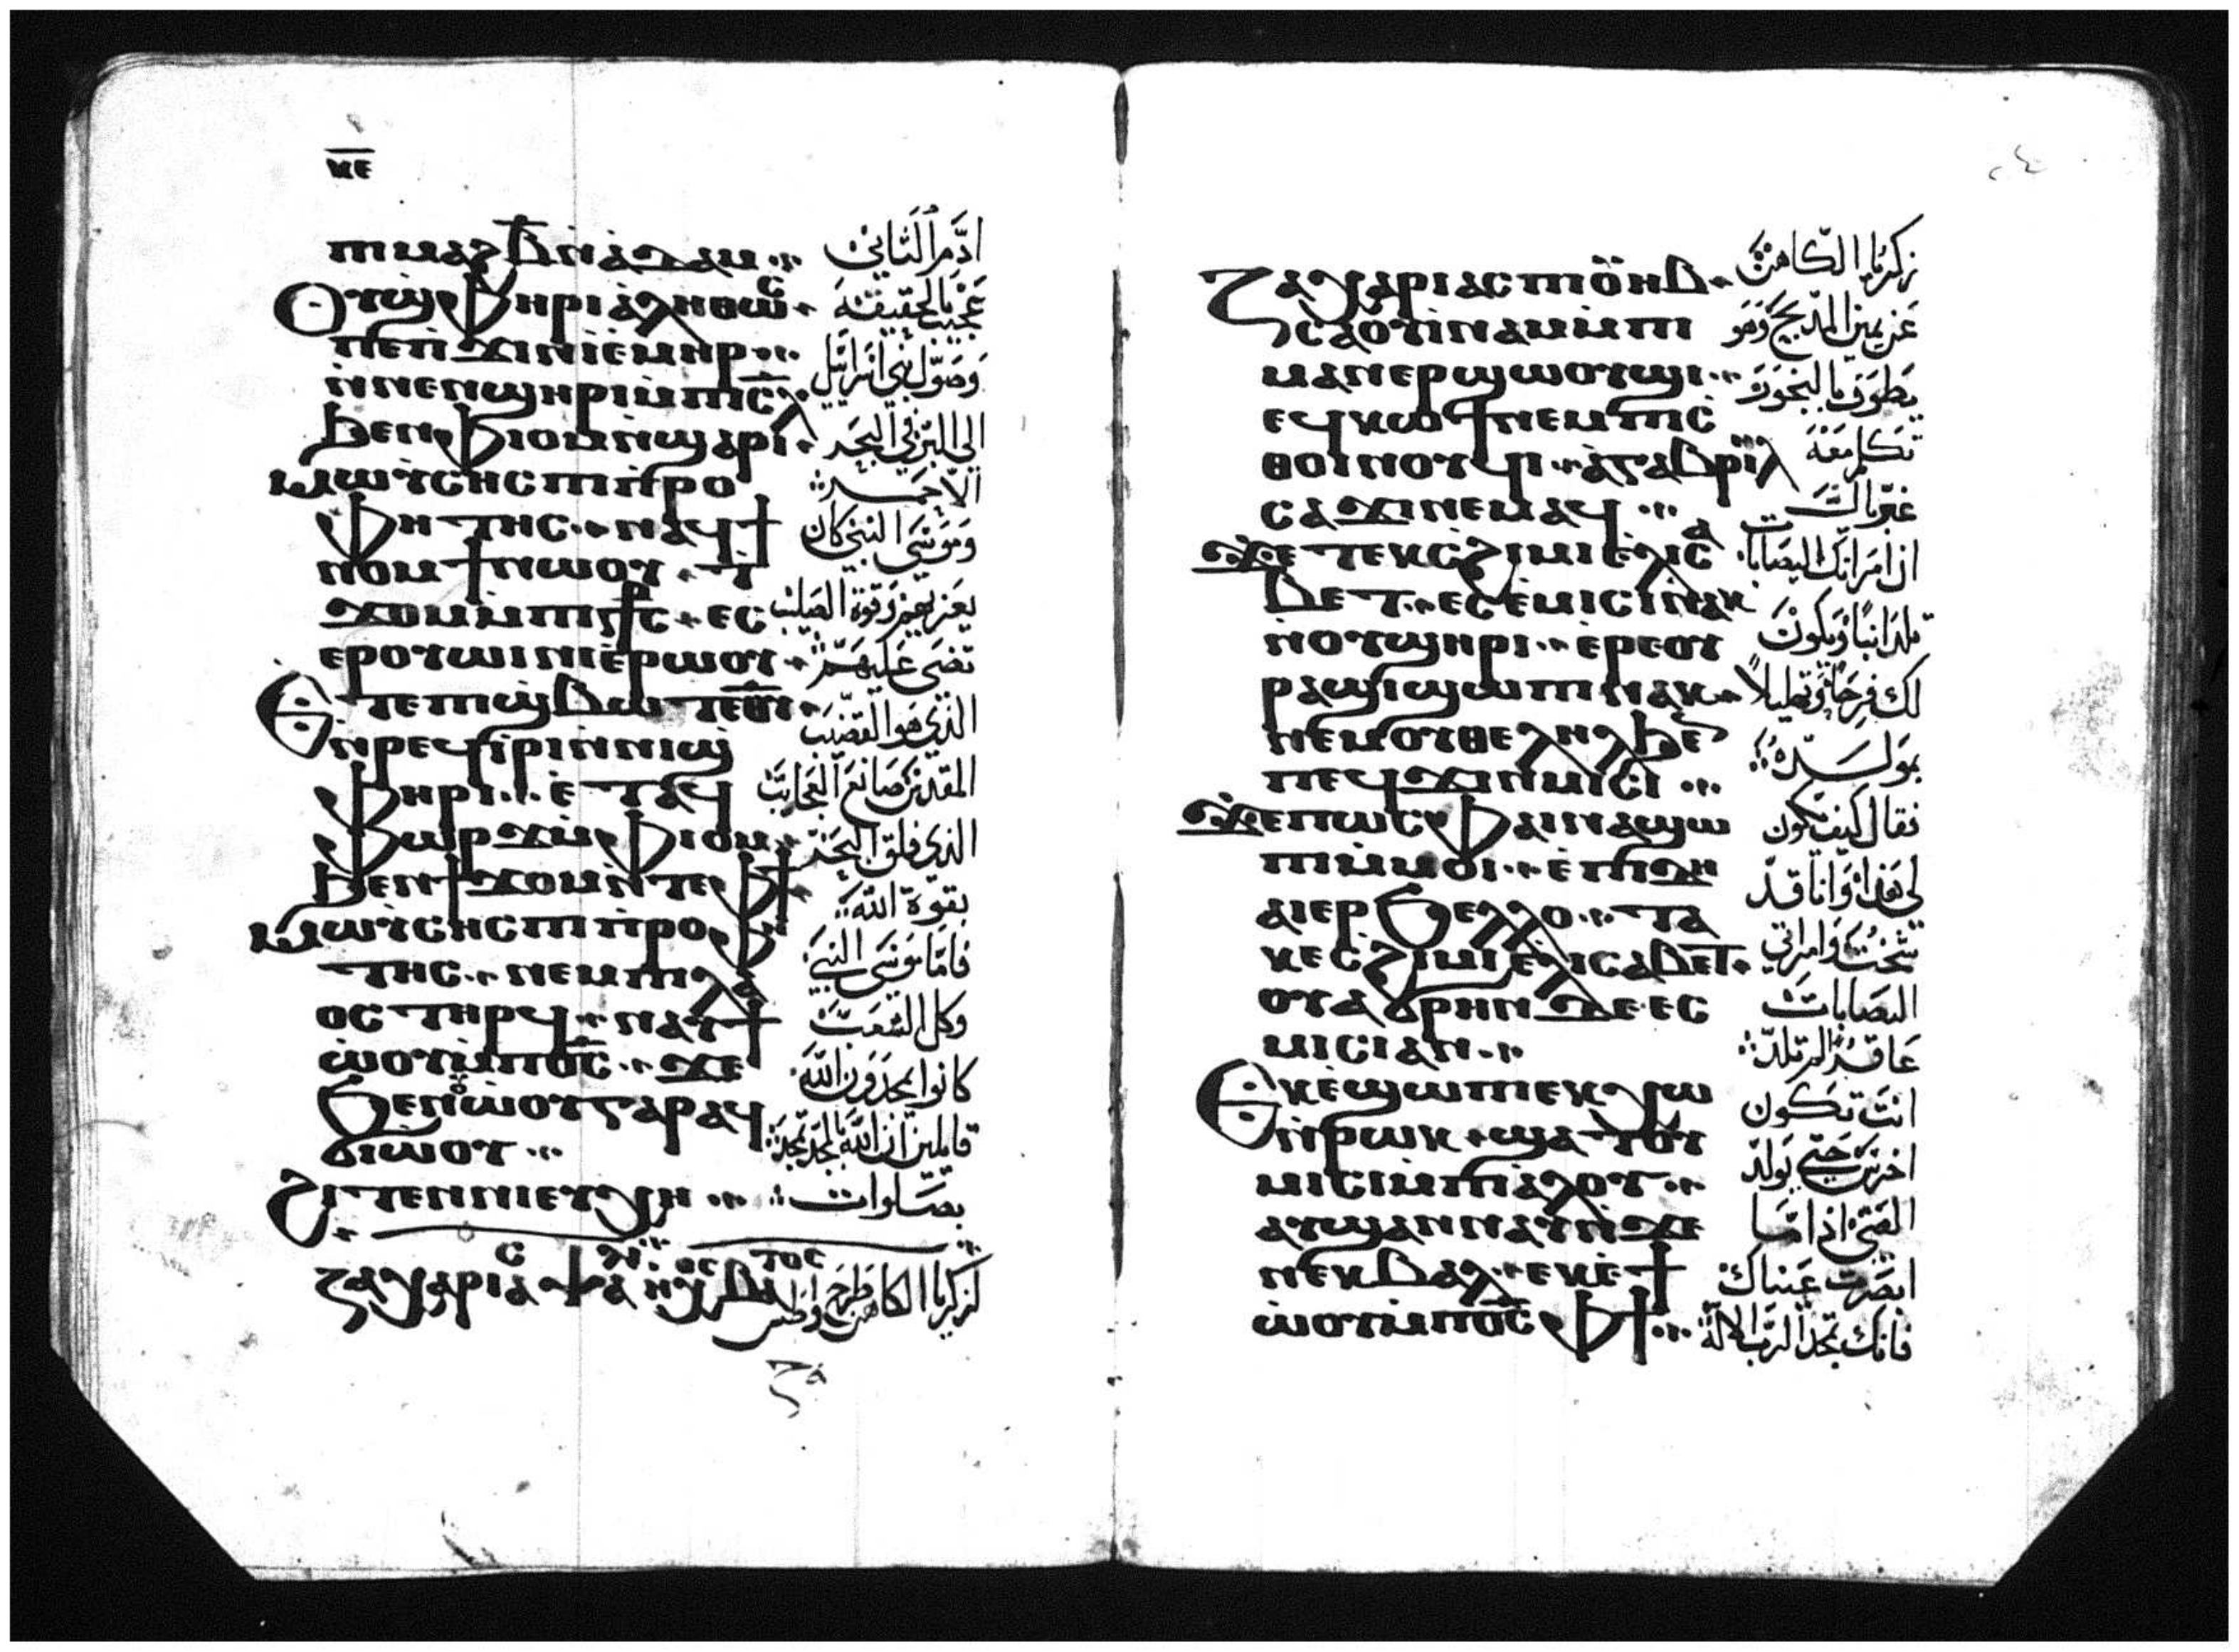 ⲕⲉ
ⲡⲓⲙⲁϩⲃ̅ⲛ̀ⲁ̀ⲇⲁⲙ
ⲟⲩϣⲫⲏⲣⲓⲁ̀ⲗⲏⲑⲱⲥ
ⲡⲉⲡϫⲓⲛⲓ̀ⲉⲙⲏⲣ
ⲛ̀ⲛⲉⲛϣⲏⲣⲓⲙ̀ⲡⲓⲥ̅ⲗ̅
ϧⲉⲛⲫⲓⲟⲙⲛ̀ϣⲁⲣⲓ
ⲙⲱⲩⲥⲏⲥⲡⲓⲡ̀ⲣⲟ
ⲫⲏⲧⲏⲥ ⲛⲁϥϯ
ⲛⲟⲙϯⲛⲱⲟⲩ
ϫⲟⲙⲙ̀ⲡⲓⲥ⳧ⲥ ⲉⲥ
ⲉⲣⲟⲩⲱⲓⲛⲓⲉ̀ⲣⲱⲟⲩ
ⲉ̀ⲧⲉⲡⲓϣⲃⲱⲧⲉ̅ⲑ̅ⲩ̅
ⲛ̀ⲣⲉϥⲓ̀ⲣⲓⲛ̀ⲛⲓϣ̀
ⲫⲏⲣⲓ ⲉ̀ⲧⲁϥ
ⲫⲱⲣϫⲙ̀ⲫⲓⲟⲙ
ϧⲉⲛϯϫⲟⲙⲛ̀ⲧⲉⲫϯ
ⲙⲱⲩⲥⲏⲥⲡⲓⲡ̀ⲣⲟⲫⲏ
ⲧⲏⲥ ⲛⲉⲙⲡⲓⲗⲁ
ⲟⲥⲧⲏⲣϥ ⲛⲁⲩϯ
ⲱ̀ⲟⲩⲙ̀ⲡ̅ⲟ̅ⲥ̅ ϫⲉ
ϧⲉⲛⲟⲩⲱ̀ⲟⲩⲅⲁⲣⲁϥ
ϭⲓⲱ̀ⲟⲩ
ϩⲓⲧⲉⲛⲛⲓⲉⲩⲭⲏ
ادم الثاني
عجيب بالحقيقه
وصول بني اسرايل
الي البر في البحر
الاحمر
وموسي النبي كان
يعزيهم وقوة الصليب
تضي عليهم
الذي هو القضيب
المقدس صانع العجايب
الذي فلق البحر
بقوة الله
فاما موسي النبي
وكل الشعب
كانوا يمجدون الله
قايلين ان الله بالمجد تمجد
بصلوات
ⲍⲁⲭⲁⲣⲓⲁⲥ
ⲍⲁⲭⲁⲣⲓⲁⲥⲡⲓⲟ̀ⲩⲏⲃ
ⲥⲁⲟⲩⲓ̀ⲛⲁⲙⲙ̀ⲡⲓ
ⲙⲁⲛⲉⲣϣⲱⲟⲩϣⲓ
ⲉϥⲕⲱϯⲛⲉⲙⲡⲓⲥ̀
ⲑⲟⲓⲛⲟⲩϥⲓ ⲁ̀ⲅⲁⲃⲣⲓⲏⲗ
ⲥⲁϫⲓⲛⲉⲙⲁϥ
ϫⲉⲧⲉⲕⲥ̀ϩⲓⲙⲓⲉ̀ⲗⲓⲥⲁ
ⲃⲉⲧ ⲉⲥⲉ̀ⲙⲓⲥⲓⲛⲁⲕ
ⲛ̀ⲟⲩϣⲏⲣⲓ ⲉ̀ⲣⲉⲟⲩ
ⲣⲁϣⲓϣⲱⲡⲓⲛⲁⲕ
ⲛⲉⲙⲟⲩⲑⲉⲗⲏⲗϧⲉ
ⲡⲉϥϫⲓⲛⲙⲓⲥⲓ
ϫⲉⲡⲱⲥⲫⲁⲓⲛⲁϣⲱ
ⲡⲓⲙ̀ⲙⲟⲓ ⲉ̀ⲡⲓⲇⲏ
ⲁⲓⲉⲣϧⲉⲗⲗⲟ ⲧⲁ
ⲕⲉⲥ̀ϩⲓⲙⲓⲉ̀ⲗⲓⲥⲁⲃⲉⲧ
ⲟⲩⲁϭⲣⲏⲛⲇⲉ ⲉⲥ
ⲙⲓⲥⲓⲁⲛ
ⲉⲕⲉ̀ϣⲱⲡⲓⲉⲕⲭⲱ
ⲛ̀ⲣⲱⲕ ϣⲁⲧⲟⲩ
ⲙⲓⲥⲓⲙ̀ⲡⲓⲁ̀ⲗⲟⲩ
ⲁⲩϣⲁⲛⲛⲁⲩⲛ̀ϫⲉ
ⲛⲉⲕⲃⲁⲗ ⲉⲕⲉ̀ϯ
ⲱ̀ⲟⲩⲙ̀ⲡ̅ⲟ̅ⲥ̅ ⲫϯ
زكريا الكاهن
عن يمين المدبح وهو
يطوف بالبخور و
تكلم معه
غبريال
ان امراتك اليصابات
تلد ابنا ويكون
لك فرحا وتهليلا
بمولده
فقال كيف يكون
لي هذا وانا قد
شخت وامراتي
اليصابات
عاقر لم تلد
انت تكون
اخرس حتي يولد
الفتي اذا ما
ابصرت عيناك
فانك تمجد الرب الاله